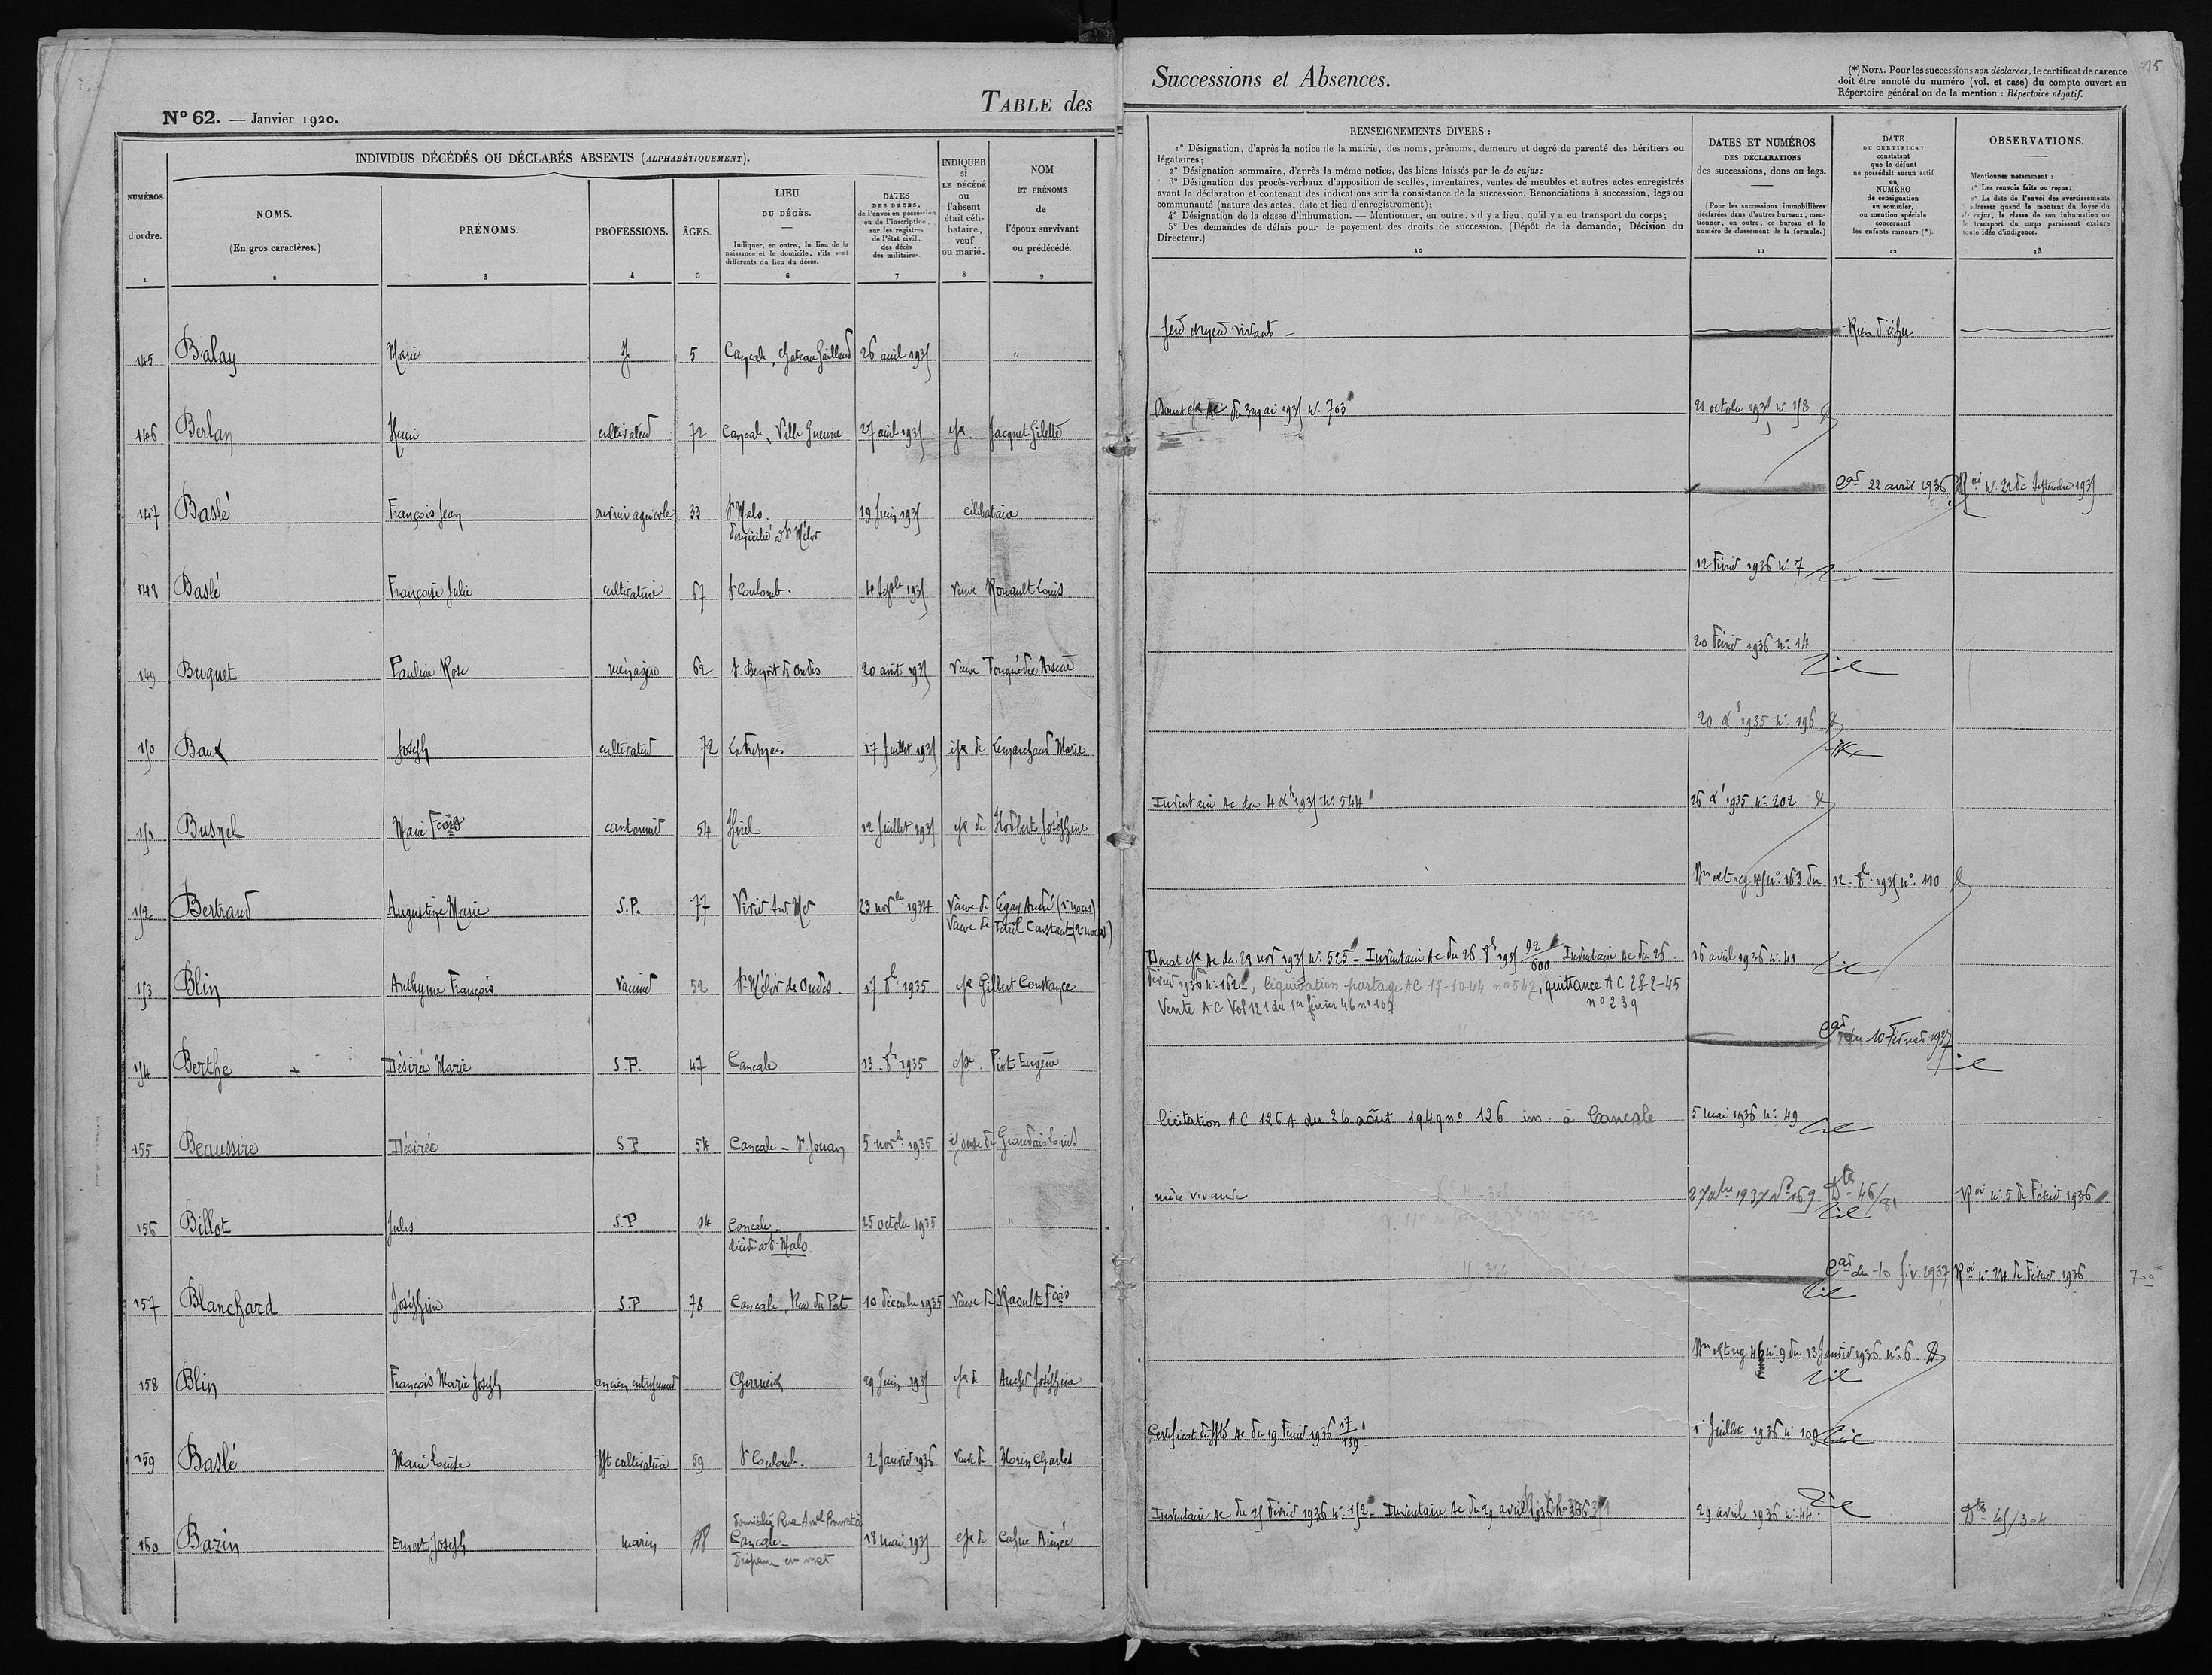 N° 62. — Janvier 1920.
TABLE des
INDIVIDUS DÉCÉDÉS OU DÉCLARÉS ABSENTS (ALPHABÉTIQUEMENT).
NUMÉROS d'ordre.
NOMS. (En gros caractères.)
PRÉNOMS.
PROFESSIONS.
ÂGES.
LIEU DU DÉCÈS.
—
Indiquer, en outre, le lieu de la naissance et le domicile, s'ils sont différents du lieu du décès.
DATES DES DÉCÈS, de l'envoi en possession ou de l'inscription, sur les registres de l'état civil, des décès des militaires.
INDIQUER si LE DÉCÉDÉ ou l'absent était célibataire, veuf ou marié.
NOM ET PRÉNOMS de l'époux survivant ou prédécédé.
1 2 3 4 5 6 7 8 9
145 Balay Marie 5 Cancale, Chateau Gaillard 26 avril 1935 "
146 Berlan Henri cultivateur 72 Cancale, Ville Guerrie 27 avril 1935 épx Jacquet Gilette
147 Baslé François Jean ouvrier agricole 33 St Malo 19 Juin 1935 célibataire
domicilié à St Méloir
148 Baslé Françoise Julie cultivatrice 67 St Coulomb 4 Septbre 1935 Veuve Rouault Louis
149 Buquet Pauline Rose ménagère 62 St Benoit des Ondes 20 août 1935 Veuve Arsène
150 Baux Joseph cultivateur 72 17 Juillet 1935 épx de Lemarchand Marie
151 Busnel Marie Fçois cantonnier 54 Hirel 12 Juillet 1935 épx de Hodbert Joséphine
152 Bertrand Augustine Marie S.P. 77 Vivier sur Mer 23 novbre 1934 Veuve de Legay André (1res noces)
Veuve de Constant (2es noces)
153 Blin Anthyme François Vannier 52 St Méloir des Ondes 17 8bre 1935 épx Gilbert Constance
154 Berthe Désirée Marie S.P. 47 Cancale 13 8bre 1935 épx Eugène
155 Beaussire Désirée S.P. 54 Cancale - St Jouan 5 novbre 1935 épouse de Grandais Louis
156 Billot Jules S.P 14 Cancale 25 octobre 1935 "
décédé à St-Malo
157 Blanchard Joséphine S.P 78 Cancale, Rue du Port 10 décembre 1935 Veuve de Raoult Fçois
158 Blin François Marie Joseph ancien entrepreneur Cherrueix 29 Juin 1935 épx de Joséphine
159 Baslé Marie Louise cultivatrice 59 St Coulomb 2 Janvier 1936 Veuve de Morin Charles
160 Bazin Ernest Joseph marin 48 domicilié Rue
Cancale 18 mai 1935 épx de Cahue Aimée
Disparu en mer
Successions et Absences.
(*) NOTA. Pour les successions non déclarées, le certificat de carence
doit être annoté du numéro (vol. et case) du compte ouvert au
Répertoire général ou de la mention : Répertoire négatif.
RENSEIGNEMENTS DIVERS :
1° Désignation, d'après la notice de la mairie, des noms, prénoms, demeure et degré de parenté des héritiers ou
légataires;
2° Désignation sommaire, d'après la même notice, des biens laissés par le de cujus;
3° Désignation des procès-verbaux d'apposition de scellés, inventaires, ventes de meubles et autres actes enregistrés
avant la déclaration et contenant des indications sur la consistance de la succession. Renonciations à succession, legs ou
communauté (nature des actes, date et lieu d'enregistrement);
4° Désignation de la classe d'inhumation. — Mentionner, en outre, s'il y a lieu, qu'il y a eu transport du corps;
5° Des demandes de délais pour le payement des droits de succession. (Dépôt de la demande; Décision du
Directeur.)
DATES ET NUMÉROS DES DÉCLARATIONS des successions, dons ou legs.
(Pour les successions immobilières déclarées dans d'autres bureaux, mentionner, en outre, ce bureau et le numéro de classement de la formule.)
DATE DU CERTIFICAT constatant que le défunt ne possédait aucun actif ou NUMÉRO de consignation au sommier, ou mention spéciale concernant les enfants mineurs (*).
OBSERVATIONS.
—
Mentionner notamment :
1° Les renvois faits ou reçus;
2° La date de l'envoi des avertissements à adresser quand le montant du loyer du de cujus, la classe de son inhumation ou le transport du corps paraissent exclure toute idée d'indigence.
10 11 12 13
vivants Rien d'échu
Donat épx Ac du 3 mai 1935 n° 703 21 octobre 1935 n° 158
Cat 22 avril 1936 Roi n° 22 de Septembre 1935
12 Février 1936 n° 7
20 Février 1936 n° 14
20 Xbre 1935 n° 196
Inventaire Ac du 4 Xbre 1935 n° 544 26 Xbre 1935 n° 202
45 n° 163 du 12 8bre 1935 n° 110
Donat épx Ac du 29 nov 1935 n° 525 - Inventaire Ac du 26 92/600 Inventaire Ac du 26 16 avril 1936 n° 41
Février 1936 n° 162, liquidation partage AC 17-10-44 n° 542, quittance AC 28-2-45
Vente AC Vol 121 du 1er février 46 n° 107 n° 239
Cat du 10 Février 1937
licitation AC 126 A du 26 août 1949 n° 126 im. à Cancale 5 mai 1936 n° 49
mère vivante 1937 N° 169 Dts 46/81 Roi n° 5 de Février 1936
Cat du 10 fév. 1937 Roi n° 24 de Février 1936
n° 9 du 13 Janvier 1936 n° 6
Certificat de ppté Ac du 19 Février 1936 17/139 1er Juillet 1936 n° 109
Inventaire Ac du 25 Février 1936 n° 152 - Inventaire Ac du 29 avril 1936 29 avril 1936 n° 44 Dts 45/304